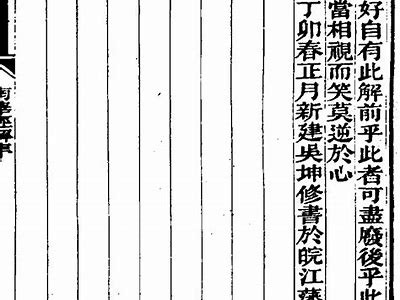 好自有此解前乎此者可盡廢後乎此
當相視而笑莫逆於心
丁卯春正月新建吳坤修書於皖江藩
南華經解